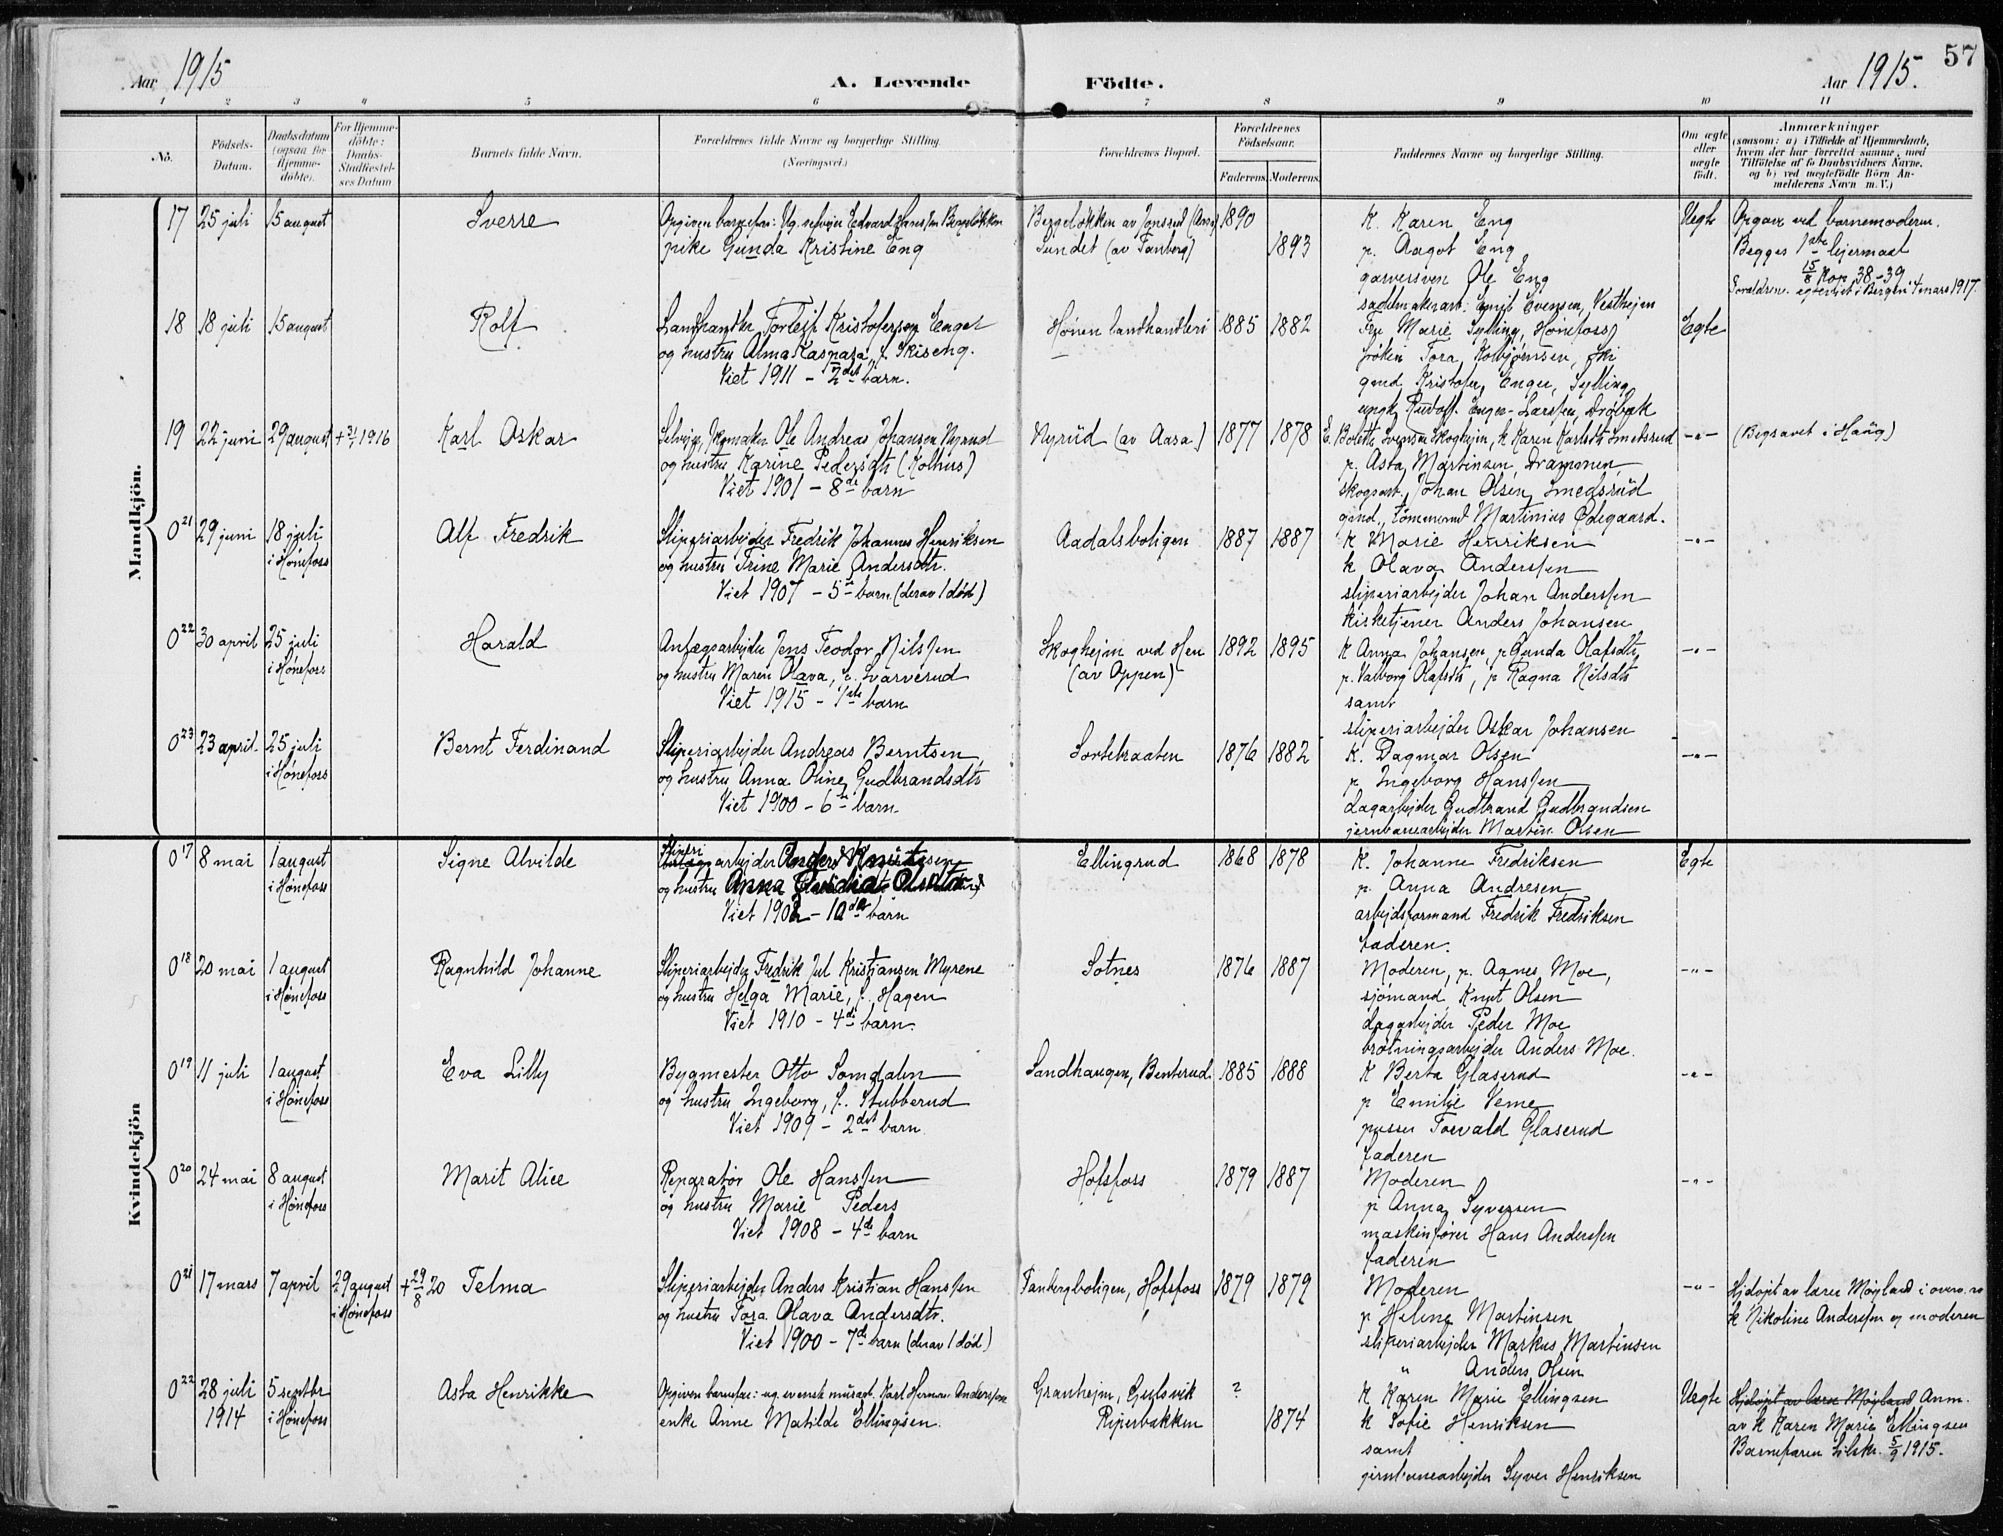 57
Aar 1915
A. Levende Födte.
Aar 1915.
1 2 3 4 5 6 7 8 9 10 11
No.
Födsels-
Datum.
Daabsdatum
(ogsaa for
Hjemme-
döbte).
For Hjemme-
döbte:
Daabs-
Stadfæstel-
ses Datum
Barnets fulde Navn.
Forældrenes fulde Navne og borgerlige Stilling
(Næringsvei.)
Forældrenes Bopæl.
Forældrenes
Födselsaar.
Faderens. Moderens.
Faddernes Navne og borgerlige Stilling.
Om ægte
eller
uægte
födt.
Anmærkninger
(saasom: a) i Tilfælde af Hjemmedaab,
hvem der har forrettet samme, med
Tilföielse af to Daabsvidners Navne,
og b) ved uægtefödte Börn An-
melderens Navn m. V.)
Mandkjön.
17 25 juli 15 august Sverre Opgiven barnefar: Ug. Edvard Hanssen Bergeløkken Bergeløkken av Jonsrud 1890 K. Karen Eng Uegte Opgave ved barnemoderen.
pike Gunda Kristine Eng Sundet (av Tanberg) 1893 p. Aagot Eng Begges 1ste lejermaal
garversven Ole Eng 15/8 Kop. 38-39
sadelmakerarb. Emil Evensen, Vesthejen Foreldrene egteviet i Bergen 4 mars 1917.
18 18 juli 15 august Rolf Landhandler Torleif Kristofersen Enger Hønen landhandleri 1885 1882 Fru Marie Sylling, Hønefoss Egte
og hustru Alma Kaspara, f. Skiseng. frøken Tora Kolbjørnsen, Ski
Viet 1911 - 2det barn. gmd. Kristofer Enger, Sylling
ungk. Rudolf Enger-Larssen, Drøbak
19 22 juni 29 august + 1916 Karl Oskar Selvejer, skomaker Ole Andreas Johansen Nyrud Nyrud (av Aasa) 1877 1878 E. Bolette Svensen Skoghejm, k Karen Karlsdtr Smedsrud -"- (Begravet i Haug)
og hustru Karine Pedersdtr (Kolhus) p. Asta Martinsen, Drammen
Viet 1901 - 8de barn skogsarb. Johan Olsen Smedsrud
gmd. tømmermd Martinius Ødegaard.
0 21 29 juni 18 juli Alf Fredrik Sliperiarbejder Fredrik Johannes Henriksen Aadalsboligen 1887 1887 k Marie Henriksen -"-
i Hønefoss og hustru Trine Marie Andersdtr. k Olava Anderssen
Viet 1907 - 5te barn (derav 1 død) sliperiarbejder Johan Anderssen
kisketjener Anders Johansen
0 22 30 april 25 juli Harald Anlægsarbejder Jens Teodor Nilssen Skoghejm ved Hen 1892 1895 K Anna Johansen, p Gunda Olafsdtr, -"-
i Hønefoss og hustru Maren Olava, f. Svarverud (av Oppen) p. Valborg Olafsdtr, p Ragna Nilsdtr
Viet 1915 - 1ste barn samt
sliperiarbejder Oskar Johansen
0 23 23 april 25 juli Bernt Ferdinand Sliperiarbejder Andreas Berntsen Sortebraaten 1876 1882 K. Dagmar Olsen -"-
i Hønefoss og hustru Anna Oline Gudbrandsdtr p Ingeborg Hanssen
Viet 1900 - 6te barn Lagarbejder Gudbrand Gudbrandsen
jernbanearbejder Martin Olsen
Kvindekjön
0 17 8 mai 1 august Signe Alvilde Sliperi
arbejder Anders Knutsen Ellingsrud 1868 1878 K. Johanne Fredriksen Egte
i Hønefoss og hustru Anna p. Anna Andresen
Viet 1902 - 10de barn arbejdsformand Fredrik Fredriksen
faderen.
0 18 20 mai 1 august Ragnhild Johanne Sliperiarbejder Fredrik Jul Kristiansen Myrene Sotnes 1876 1887 Moderen, p. Agnes Moe, -"-
i Hønefoss og hustru Helga Marie, f. Hagen sjømand Knut Olsen
Viet 1910 - 4de barn. Lagarbejder Peder Moe
brøtningsarbejder Anders Moe.
0 19 11 juli 1 august Eva Lilly Bygmester Otto Somdalen Sandhaugen, Benterud. 1885 1888 K Berta Glaserud -"-
i Hønefoss og hustru Ingeborg, f. Stubberud p Emilie Veme
Viet 1909 - 2det barn pusser Torvald Glaserud
faderen
0 20 24 mai 8 august Marit Alice Reparatør Ole Hanssen Hofsfoss 1879 1887 Moderen -"-
i Hønefoss og hustru Marie Peders p Anna Syversen
Viet 1908 - 4de barn maskinfører Hans Anderssen
faderen
0 21 17 mars 7 april 29 august + 29/8 20 Telma Sliperiarbejder Anders Kristian Hanssen Tanbergboligen, Hofsfoss 1879 1879 Moderen -"- Hjdøpt av lærer Møyland i overv. av
i Hønefoss og hustru Tora Olava Andersdtr. p Helene Martinsen k Nikoline Anderssen og moderen
Viet 1900 - 7de barn (derav 1 død) sliperiarbejder Markus Martinsen
" Anders Olsen
0 22 28 juli 5 septbr Asta Henrikke Opgiven barnefar: ug. svensk murarb. Karl Herman Anderssen Granhejm, Gulsvik ? K Karen Marie Ellingsen Uegte Hjdøpt av lærer Møyland Anm.
1914 i Hønefoss enke Anne Matilde Ellingsen. Riperbakken 1874 k Sofie Henriksen av k Karen Marie Ellingsen
samt Barnefaren tilskr. 5/9 1915.
jernbanearbejder Syver Henriksen